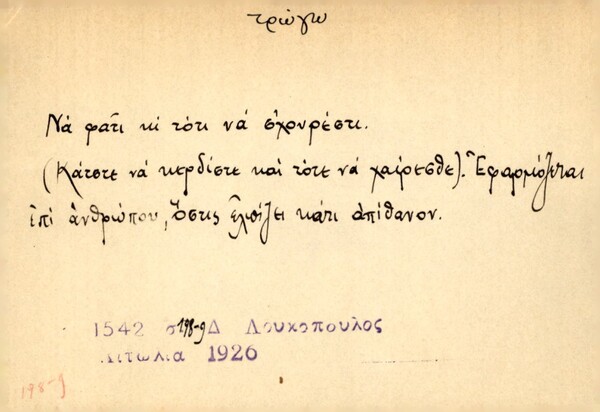 τρώγω
Νά φᾶτι κί τότι νά σχουρέστι.
(Κάτστε νά κερδίστε καί τότε νά χαίρεσθε). Ἐφαρμόζεται
ἐπί ἀνθρώπου, ὅστις ἐλπίζει κάτι ἀπίθανον.
1542 σ 198-9 Δ Λουκοπουλος
Αιτωλια 1926
198-9